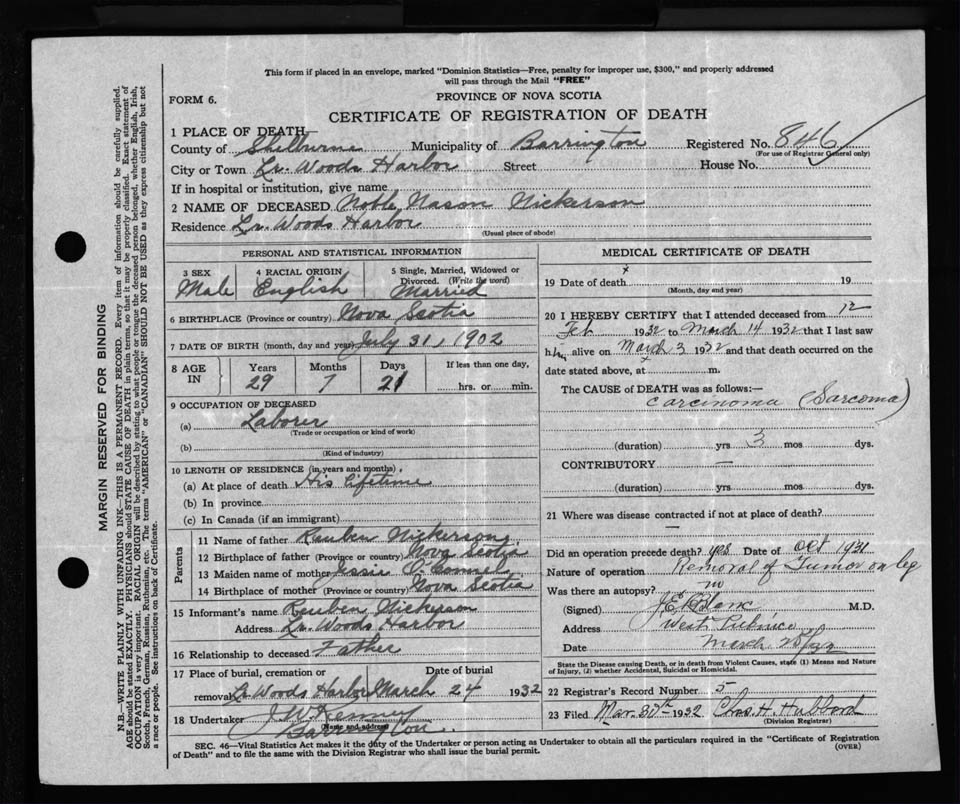 This form if placed in an envelope, marked "Dominion Statistics—Free, penalty for improper use, $300," and properly addressed
will pass through the Mail "FREE"
FORM 6.
PROVINCE OF NOVA SCOTIA
CERTIFICATE OF REGISTRATION OF DEATH
1 PLACE OF DEATH
County of Shelburne Municipality of Barrington Registered No. 846
(For use of Registrar General only)
City or Town Lr. Woods Harbor Street House No.
If in hospital or institution, give name
2 NAME OF DECEASED Noble Nason Nickerson
Residence Lr. Woods Harbor
(Usual place of abode)
PERSONAL AND STATISTICAL INFORMATION
3 SEX 4 RACIAL ORIGIN 5 Single, Married, Widowed or
Divorced. (Write the word)
Male English Married
6 BIRTHPLACE (Province or country) Nova Scotia
7 DATE OF BIRTH (month, day and year) July 31, 1902
8 AGE IN Years Months Days If less than one day,
29 7 21 hrs. or min.
9 OCCUPATION OF DECEASED
(a) Laborer
(Trade or occupation or kind of work)
(b)
(Kind of industry)
10 LENGTH OF RESIDENCE (in years and months)
(a) At place of death His Lifetime
(b) In province
(c) In Canada (if an immigrant)
Parents
11 Name of father Reuben Nickerson
12 Birthplace of father (Province or country) Nova Scotia
13 Maiden name of mother Jessie O'Connel
14 Birthplace of mother (Province or country) Nova Scotia
15 Informant's name Reuben Nickerson
Address Lr. Woods Harbor
16 Relationship to deceased Father
17 Place of burial, cremation or Date of burial
removal Lr Woods Harbor March 24 1932
18 Undertaker J W Kenney
(Name and address)
Barrington
MEDICAL CERTIFICATE OF DEATH
x
19 Date of death 19
(Month, day and year)
20 I HEREBY CERTIFY that I attended deceased from 12
Feb 1932 to March 14 1932 that I last saw
him alive on March 3 1932 and that death occurred on the
date stated above, at m.
The CAUSE of DEATH was as follows:—
Carcinoma (Sarcoma)
(duration) yrs 3 mos dys.
CONTRIBUTORY —
(duration) yrs. mos. dys.
21 Where was disease contracted if not at place of death?
—
Did an operation precede death? yes Date of Oct 1931
Nature of operation Removal of Tumor on leg
Was there an autopsy? no
(Signed) M.D.
Address West Pubnico
Date March
State the Disease causing Death, or in death from Violent Causes, state (1) Means and Nature
of Injury, (2) whether Accidental, Suicidal or Homicidal.
22 Registrar's Record Number 5
23 Filed Mar. 30th 1932 Chas. H. Hubbard
(Division Registrar)
SEC. 46—Vital Statistics Act makes it the duty of the Undertaker or person acting as Undertaker to obtain all the particulars required in the "Certificate of Registration
of Death" and to file the same with the Division Registrar who shall issue the burial permit.
(OVER)
MARGIN RESERVED FOR BINDING
N.B.—WRITE PLAINLY WITH UNFADING INK—THIS IS A PERMANENT RECORD. Every item of information should be carefully supplied.
AGE should be stated EXACTLY. PHYSICIANS should STATE CAUSE OF DEATH in plain terms, so that it may be properly classified. Exact statement of
OCCUPATION is very important. RACIAL ORIGIN will be described by stating to what people or tongue the deceased person belonged, whether English, Irish,
Scotch, French, German, Russian, Ruthenian, etc. The terms "AMERICAN" or "CANADIAN" SHOULD NOT BE USED as they express citizenship but not
a race or people. See instructions on back of Certificate.